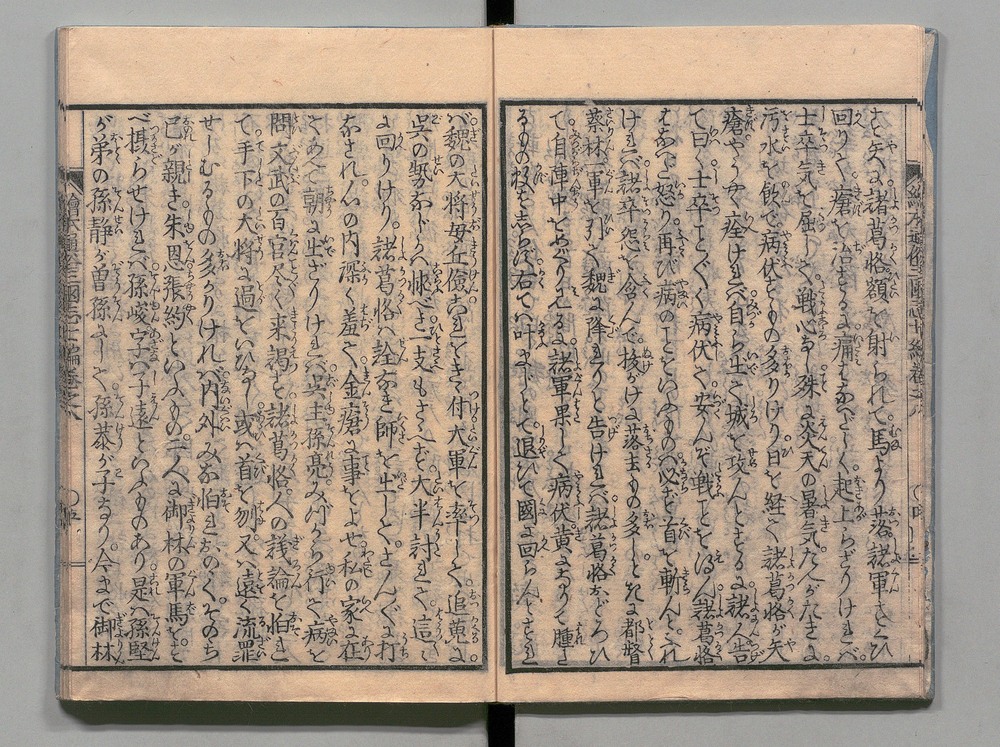 諸葛恪額を射られて馬より落諸軍すくひ
回りて瘡を治するに痛甚だしく起上らざりければ
士卒気を屈して戦心なし殊に炎天の暑気たへがたきに
汚水を飲で病伏ものゝ多かりけり日を経て諸葛恪が矢
瘡やうやく痊ければ自ら出て城を攻んとするに諸人告
て曰く士卒こと〴〵く病伏て安んぞ戦ことを得ん諸葛恪
大に怒り再び病のことをいふものハ必ず首を斬んといひ
ければ諸卒怨を含んで抜かけに落去もの多しときに都督
蔡林軍を引て魏に降れりと告ければ諸葛恪おどろひ
て自陣中をめぐりみるに諸軍果して病伏黄になりて腫き
るもの数をしらず右てハ叶まじとて退ひて國に回らんとすれ
バ魏の大将毋丘倹これをきゝ付大軍を率して追蒐に
呉の勢なじかハ怺べき一支もさゝへず大半討れて這々
に回りけり諸葛恪ハ詮なき師を出してさんざんに打
なされ心の内深く羞て金瘡に事をよせ私の家に在
てあへて朝に出ざりければ呉主孫亮みづから行て病を
問文武の百官尽く来謁す諸葛恪人の議論を怕れ
て手下の大将に過をいひなし或ハ首を刎又ハ遠く流罪
せしむるもの多かりければ内外みな怕れおのゝくそのち
己が親き朱恩張約といふもの二人に御林の軍馬をす
べ摂らせければ孫峻字ハ子遠といふものあり是ハ孫堅
が弟の孫静が曽孫にして孫恭が子なり今まで御林